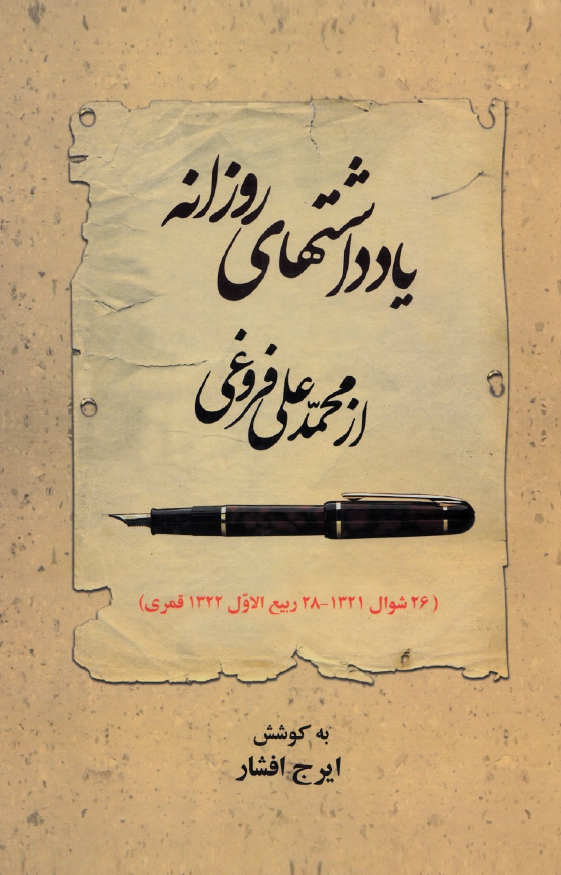 یادداشتهای روزانه
از محمدّعلی فروغی
(۲۶ شوال ۱۳۲۱-۲۸ ربیع الاوّل ۱۳۲۲ قمری)
به کوشش
ایرج افشار